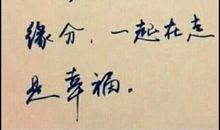 缘分，一起在走
是幸福。